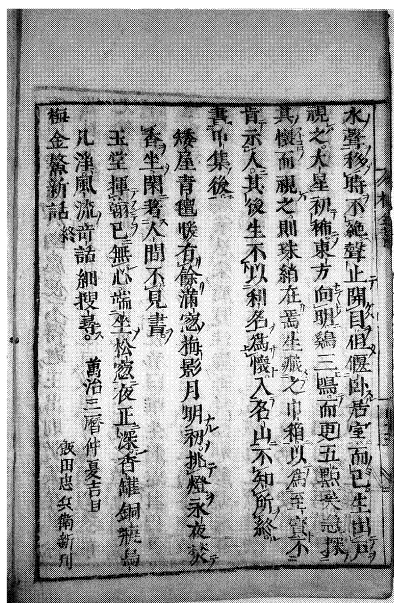 水聲移時不絶聲止開目但偃臥居室而已生出戶
視之大星初稀東方向明鷄三鳴而更五點矣急探
其懷而視之則珠綃在焉生藏之巾箱以爲至寶不
肯示人其後生不以利名爲懷入名山不知所終
書甲集後
矮屋青氊暖有餘滿窓梅影月明初挑燈永夜焚
香坐閑著人間不見書
玉堂揮翰已無心端坐松窓夜正深香罐銅瓶烏
几淨風流奇話細搜尋。
萬治三曆仲夏吉旦
梅金鰲新話終
飯田忠兵衛新刊